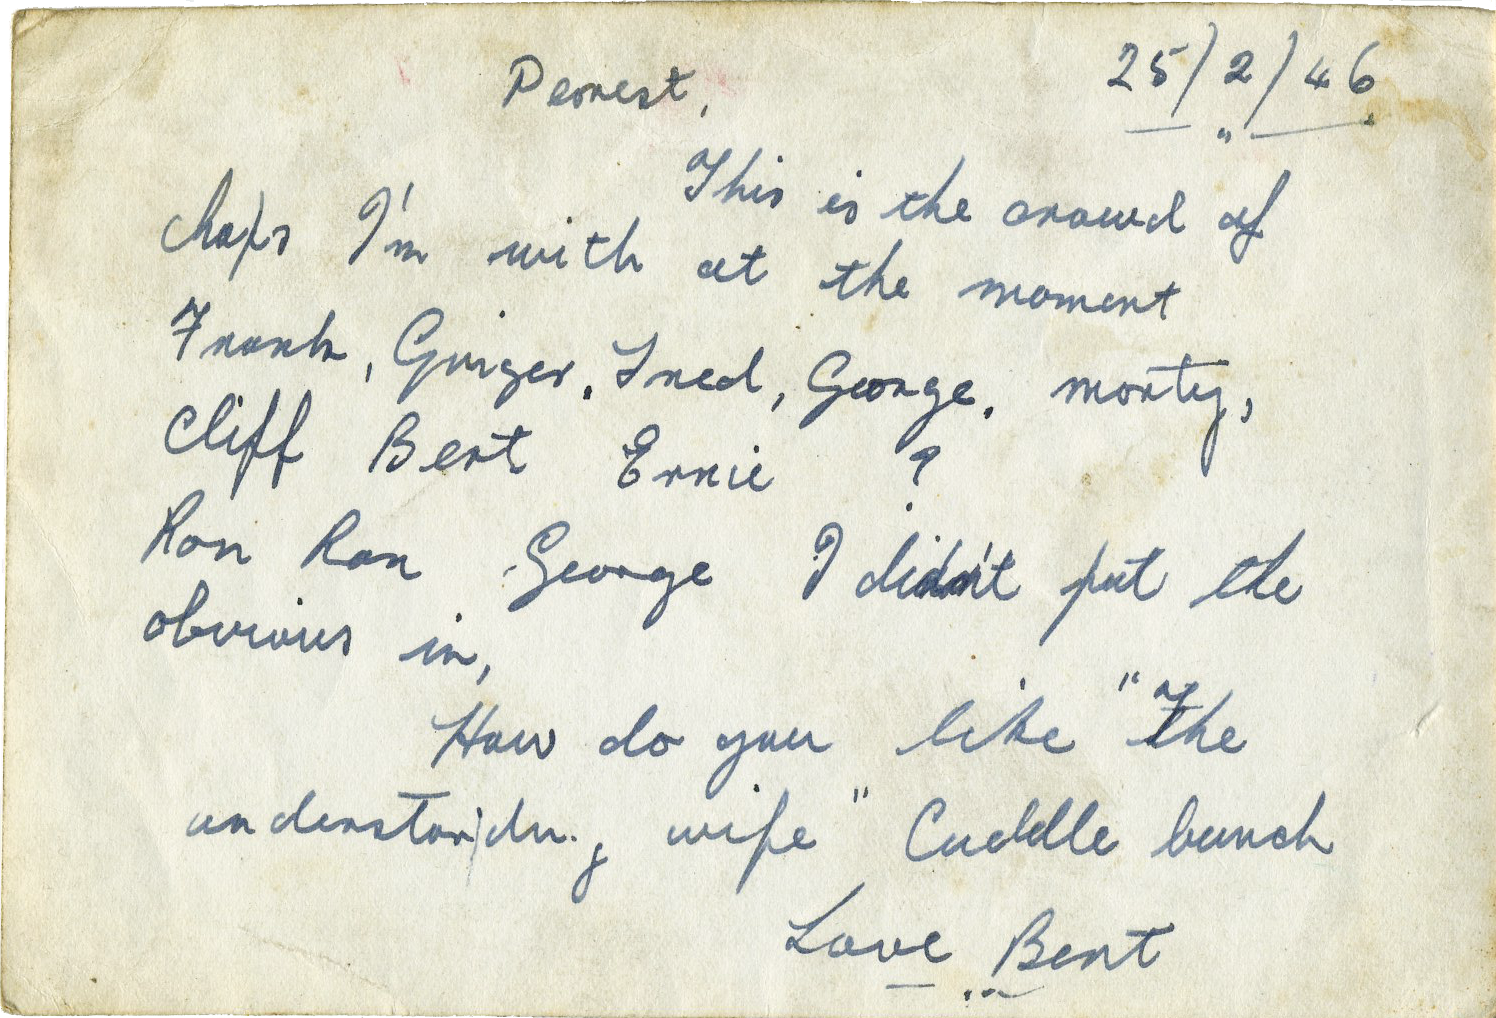 25/2/46
Dearest,
This is the crowd of
chaps I'm with at the moment
Frank, Ginger, Fred, George, monty,
Cliff Bert Ernie ?
Ron Ron George I didn't put the
obvious in,
How do you like "The
understanding wife" Cuddle bunch
Love Bert